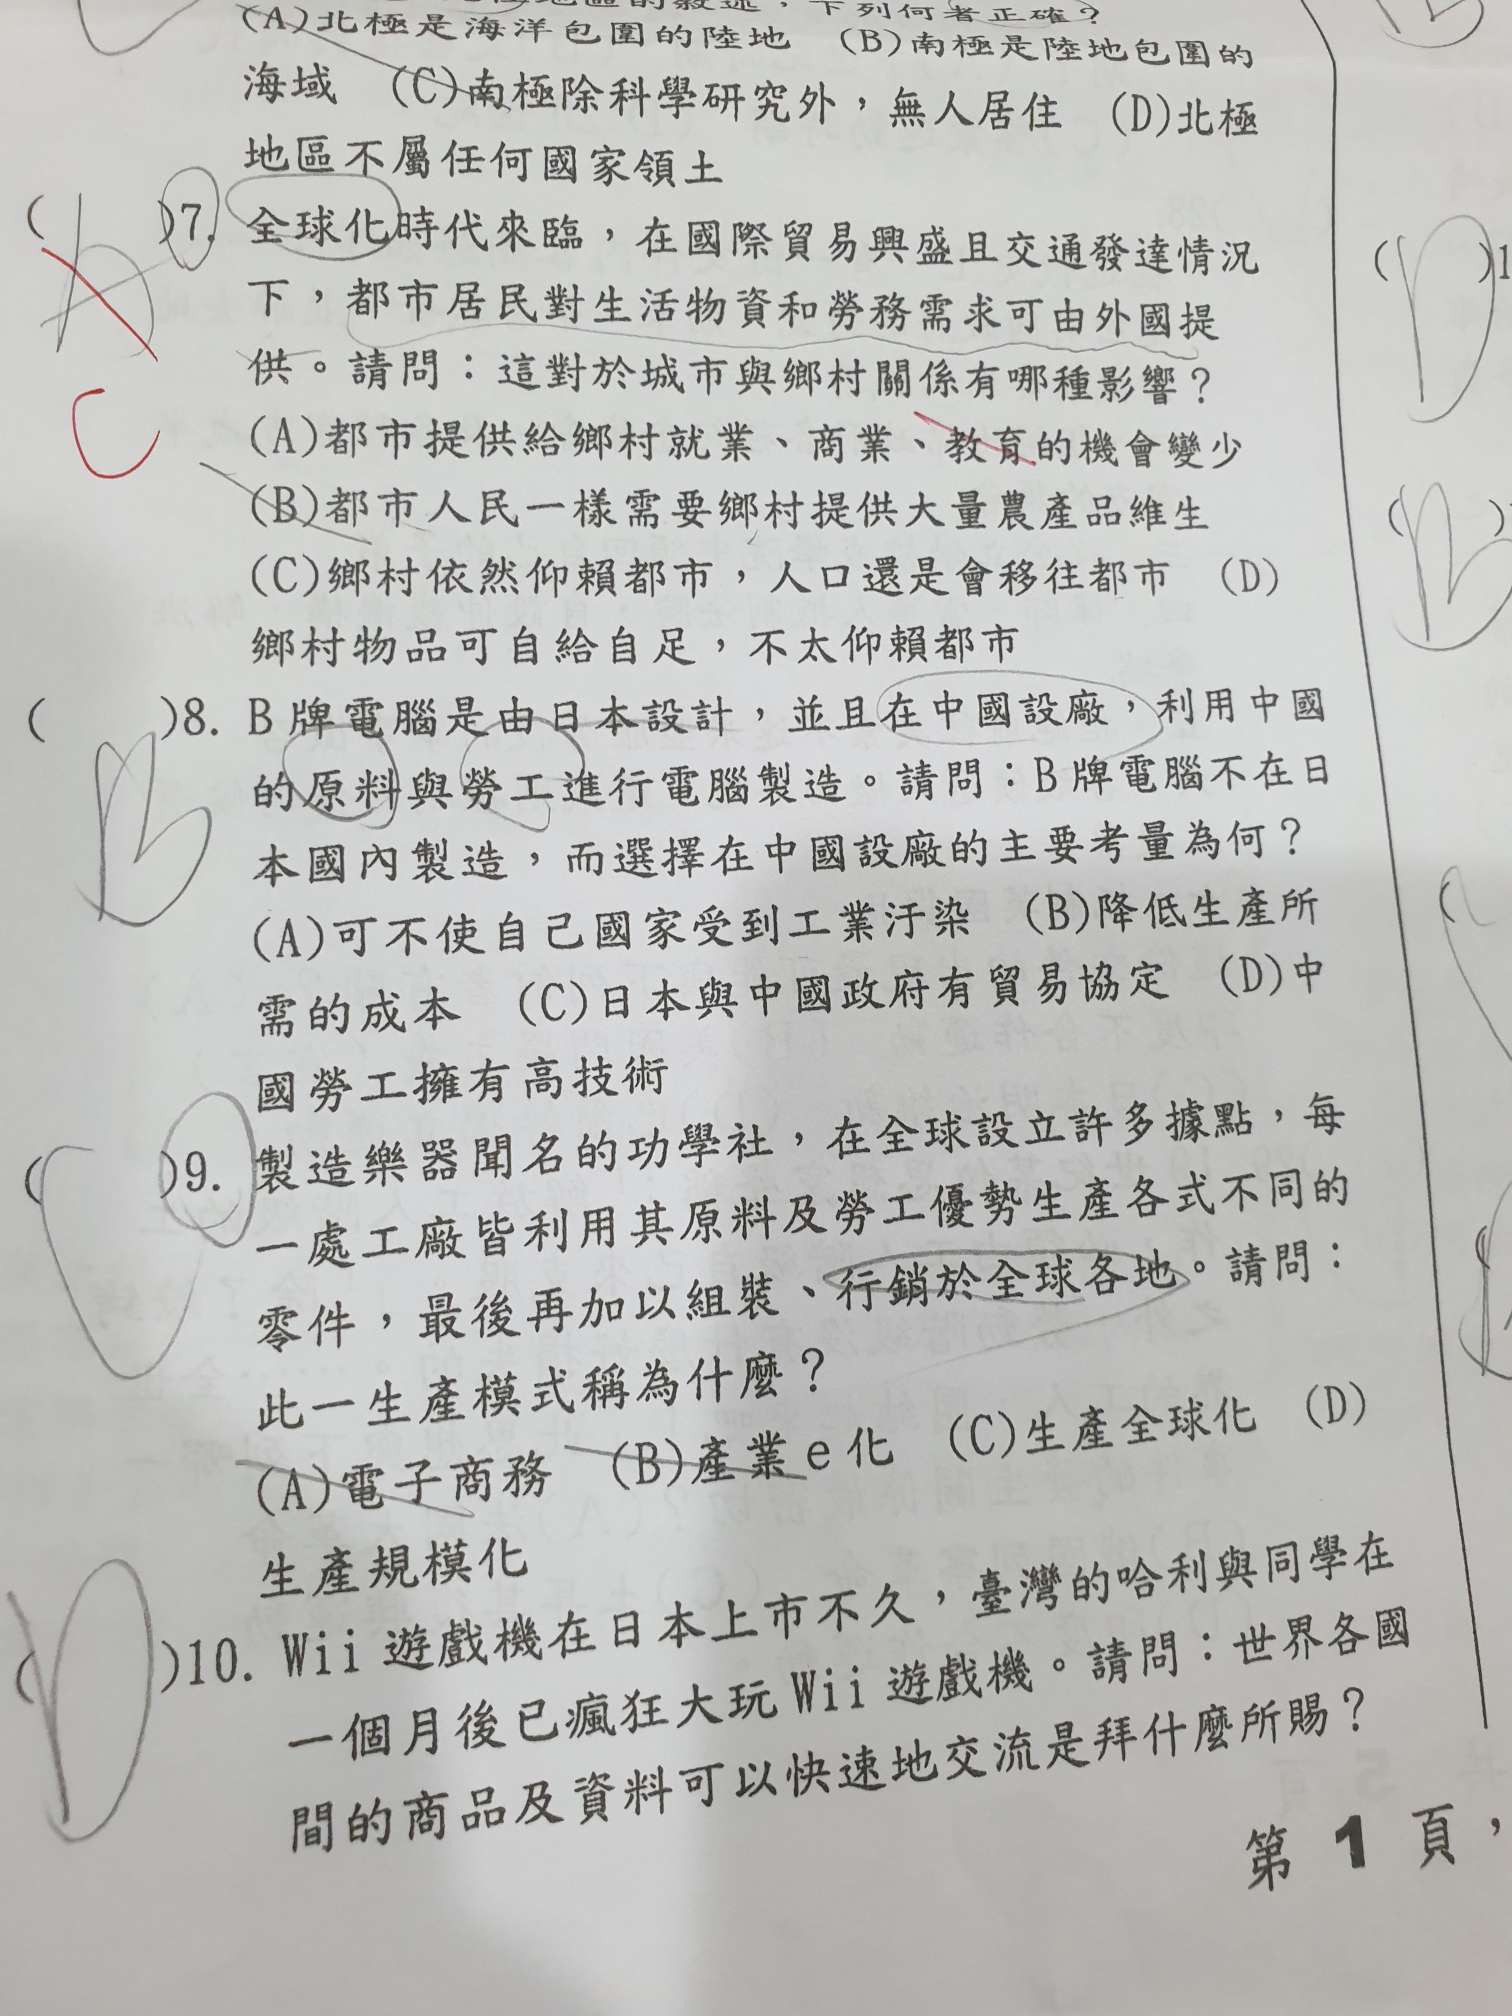 地區的敘述，下列何者正確？
(A)北極是海洋包圍的陸地　(B)南極是陸地包圍的
海域　(C)南極除科學研究外，無人居住　(D)北極
地區不屬任何國家領土
(A)7. 全球化時代來臨，在國際貿易興盛且交通發達情況
下，都市居民對生活物資和勞務需求可由外國提
供。請問：這對於城市與鄉村關係有哪種影響？
C
(A)都市提供給鄉村就業、商業、教育的機會變少
(B)都市人民一樣需要鄉村提供大量農產品維生
(C)鄉村依然仰賴都市，人口還是會移往都市　(D)
鄉村物品可自給自足，不太仰賴都市
(B)8. B牌電腦是由日本設計，並且在中國設廠，利用中國
的原料與勞工進行電腦製造。請問：B牌電腦不在日
本國內製造，而選擇在中國設廠的主要考量為何？
(A)可不使自己國家受到工業汙染　(B)降低生產所
需的成本　(C)日本與中國政府有貿易協定　(D)中
國勞工擁有高技術
(C)9. 製造樂器聞名的功學社，在全球設立許多據點，每
一處工廠皆利用其原料及勞工優勢生產各式不同的
零件，最後再加以組裝、行銷於全球各地。請問：
此一生產模式稱為什麼？
(A)電子商務　(B)產業e化　(C)生產全球化　(D)
生產規模化
(D)10. Wii遊戲機在日本上市不久，臺灣的哈利與同學在
一個月後已瘋狂大玩Wii遊戲機。請問：世界各國
間的商品及資料可以快速地交流是拜什麼所賜？
第 1 頁，
(D)1
(B)